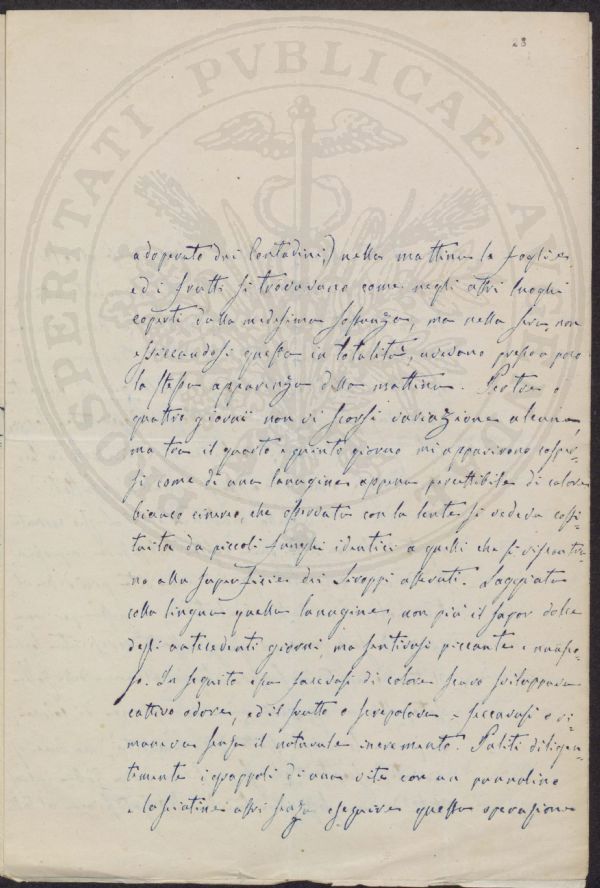 23
PROSPERITATI PVBLICAE AVGENDAE
adoperato dai Contadini,) nella mattina le foglie
ed i frutti si trovavano come negli altri luoghi
coperti dalla medesima sostanza, ma nella sera non
essiccandosi questa in totalità, avevano presso a poco
la stessa apparenza della mattina. Per tre o
quattro giorni non vi scorsi variazione alcuna
ma tra il quarto e quinto giorno mi apparirono cosper-
si come di una lanugine appena percettibile di colore
bianco cinereo, che osservata con la lente si vedeva costi-
tuita da piccoli funghi identici a quelli che si riscontra-
no alla superficie dei Siroppi alterati. Saggiata
colla lingua quella lanugine, non più il sapor dolce
degli antecedenti giorni, ma sentivasi piccante e nauseo-
so. In seguito essa facevasi di colore scuro sviluppava
cattivo odore, ed il frutto o screpolava o seccavasi o ri-
maneva senza il naturale incremento. Puliti diligen-
temente i grappoli di una vite con un pannolino
e lasciatine altri senza eseguire questa operazione